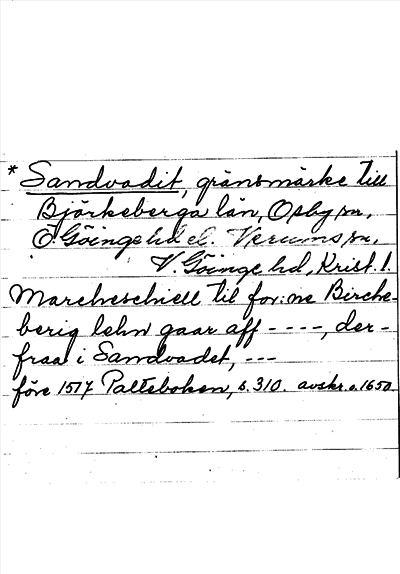 * Sandvadit, gränsmärke till
Björkeberga län, Osby sn,
Ö. Göinge hd el. Verums sn,
V. Göinge hd, Krist. l.
Marcheschiell til for:ne Birche-
berig lehn gaar aff - - - -, der-
fraa i Sandvadet, - - -
före 1517 Palteboken, s. 310. avskr. c. 1650.